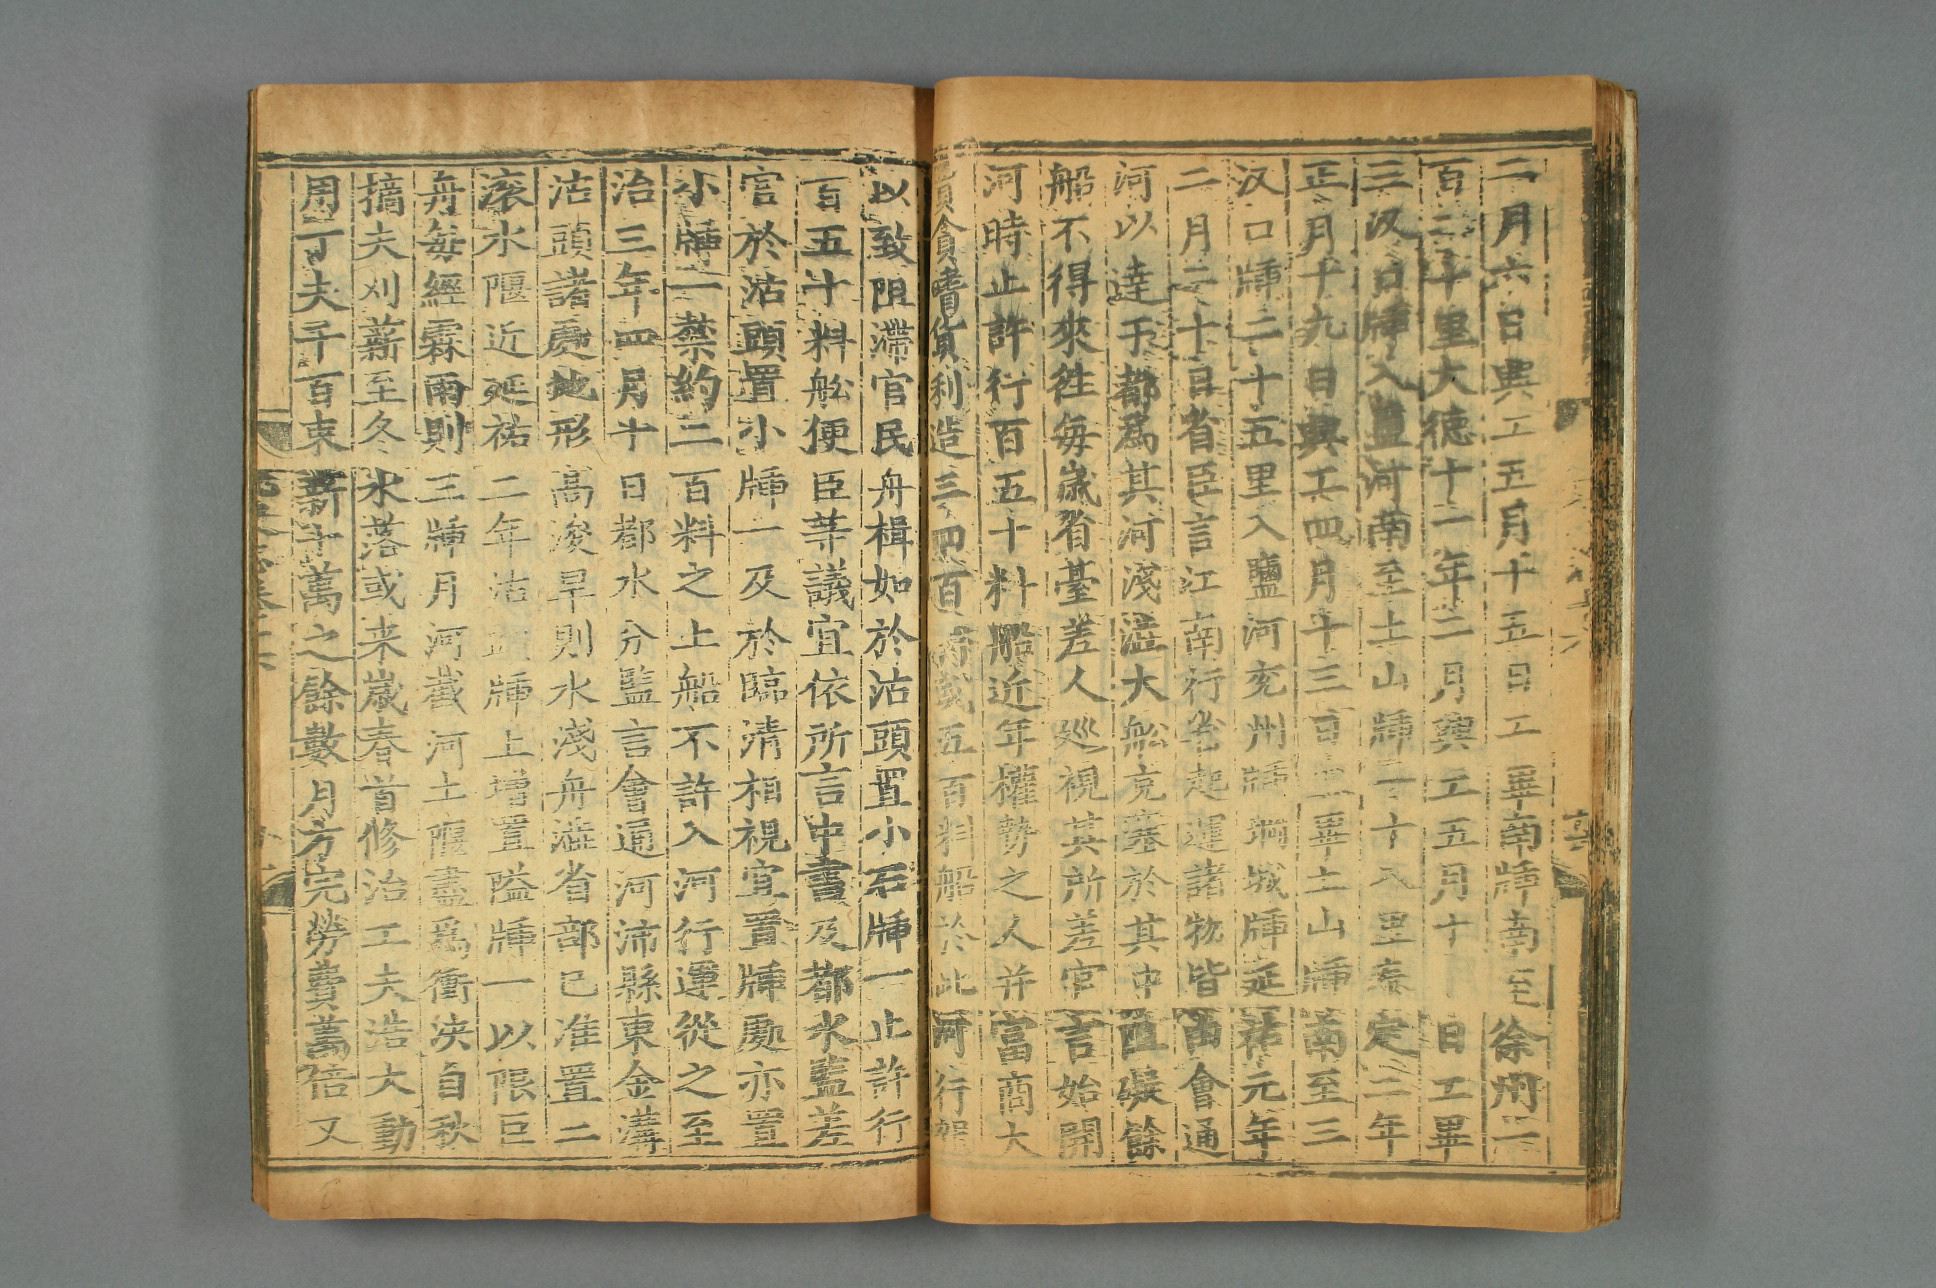 二月六日興工五月十五日工畢南牐南至徐州一
百二十里大德十一年二月興工五月十日工畢
三汊口牐入鹽河南至土山牐二十八里泰定二年
正月十九日興工四月十三日工畢土山牐南至三
汊口牐二十五里入鹽河兖州牐堽城牐延祐元年
二月二十日省臣言江南行省起運諸物皆由會通
河以達于都爲其河淺澁大舩充塞於其中阻礙餘
船不得來徃每歲省臺差人廵視其所差官言始開
河時止許行百五十料船近年權勢之人并富商大
賈貪嗜貨利造三四百料或五百料船於此河行駕
以致阻滯官民舟楫如於沽頭置小石牐一止許行
百五十料舩便臣等議宜依所言中書及都水監差
官於沽頭置小牐一及於臨清相視宜置牐處亦置
小牐一禁約二百料之上船不許入河行運從之至
治三年四月十日都水分監言會通河沛縣東金溝
沽頭諸處地形高峻旱則水淺舟澁省部已准置二
滚水隁近延祐二年沽頭牐上增置隘牐一以限巨
舟每經霖雨則三牐月河截河土隁盡爲衝决自秋
摘夫刈薪至冬水落或来歲春首修治工夫浩大動
用丁夫千百束薪十萬之餘數月方完勞費萬倍又